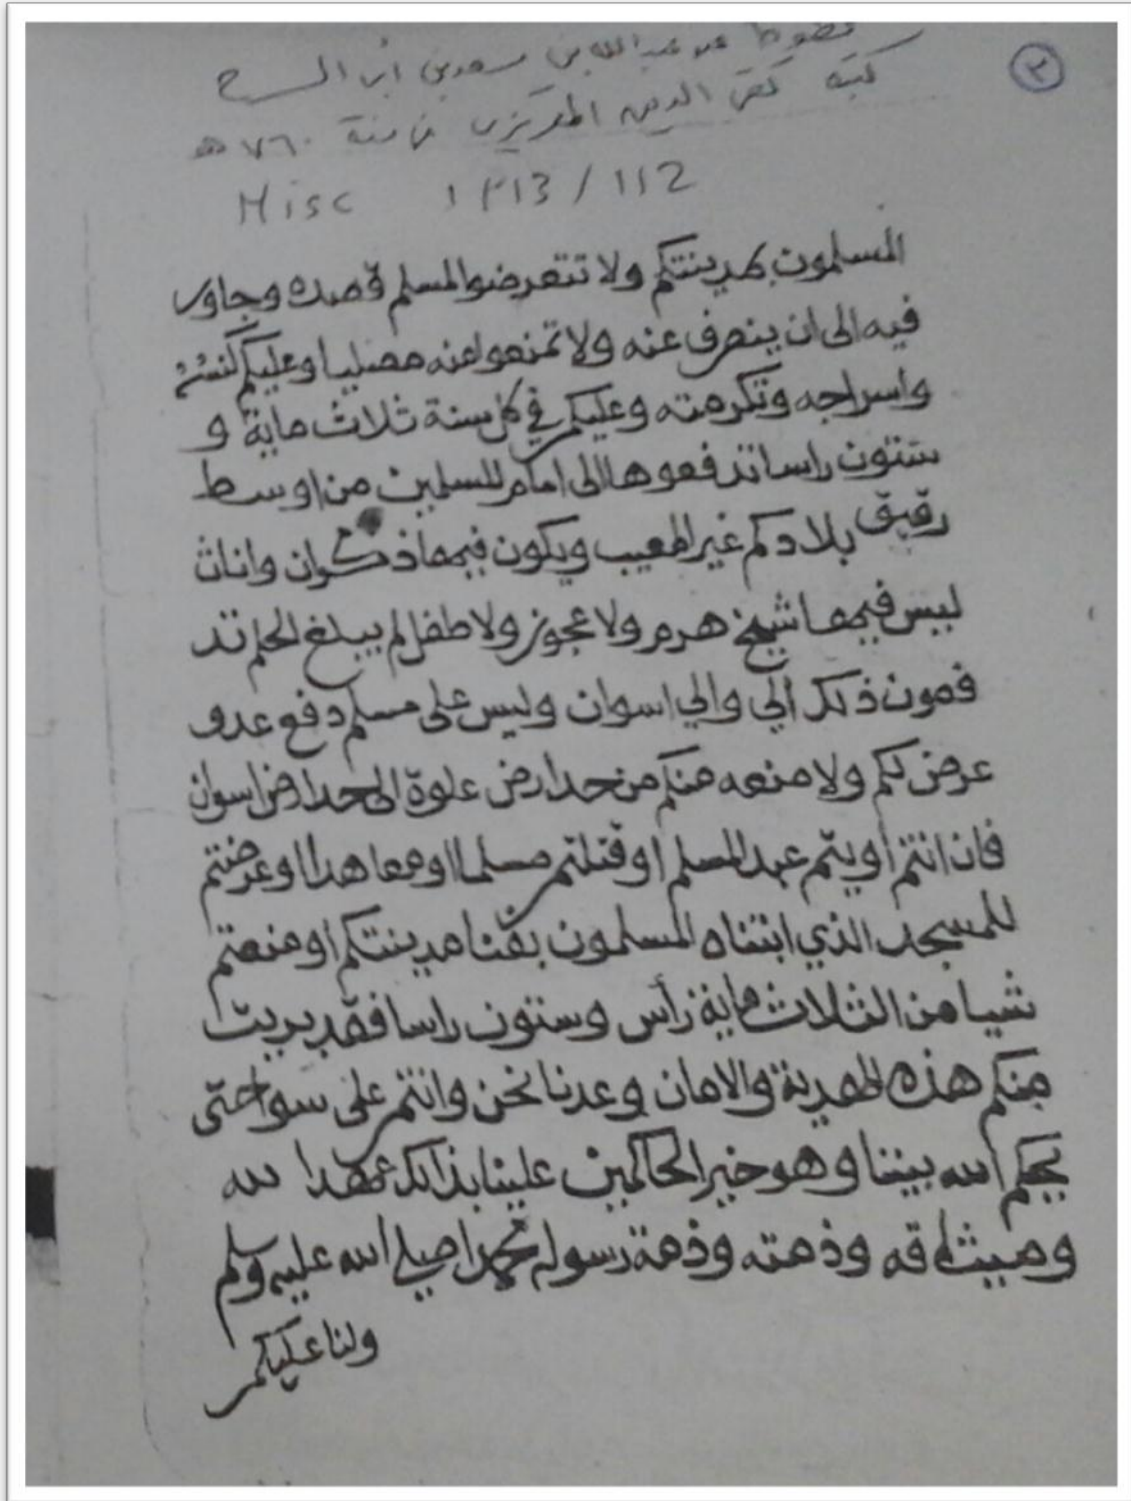 ٢
مخطوط عن عبد الله بن سعد بن أبى السرح
كتبه تقى الدين المقريزى فى سنة ٧٦٠ هـ
Misc ١٣١3 / 112
المسلمون بمدينتكم ولا تتعرضوا لمسلم قصده وجاور
فيه الى ان ينصرف عنه ولا تمنعوا عنه مصليا وعليكم كنسه
واسراجه وتكرمته وعليكم في كل سنة ثلاث ماية و
ستون راسا تدفعوها الى امام المسلمين من اوسط
رقيق بلادكم غير المعيب ويكون فيها ذكران واناث
ليس فيها شيخ هرم ولا عجوز ولا طفل لم يبلغ الحلم تد
فعون ذلك الي والي اسوان وليس على مسلم دفع عدو
عرض لكم ولا منعه منكم من حد ارض علوة الى حد ارض اسوان
فان انتم اويتم عبد المسلم او قتلتم مسلما او معاهدا او عرضتم
للمسجد الذي ابتناه المسلمون بفنا مدينتكم او منعتم
شيا من الثلاث ماية رأس وستون راسا فقد بريت
منكم هذه الهدنة والامان وعدنا نحن وانتم على سوا حتى
يحكم الله بيننا وهو خير الحاكمين علينا بذالك عهدا لله
وميثاقه وذمته وذمة رسوله محمدا صلى الله عليه وسلم
ولنا عليكم